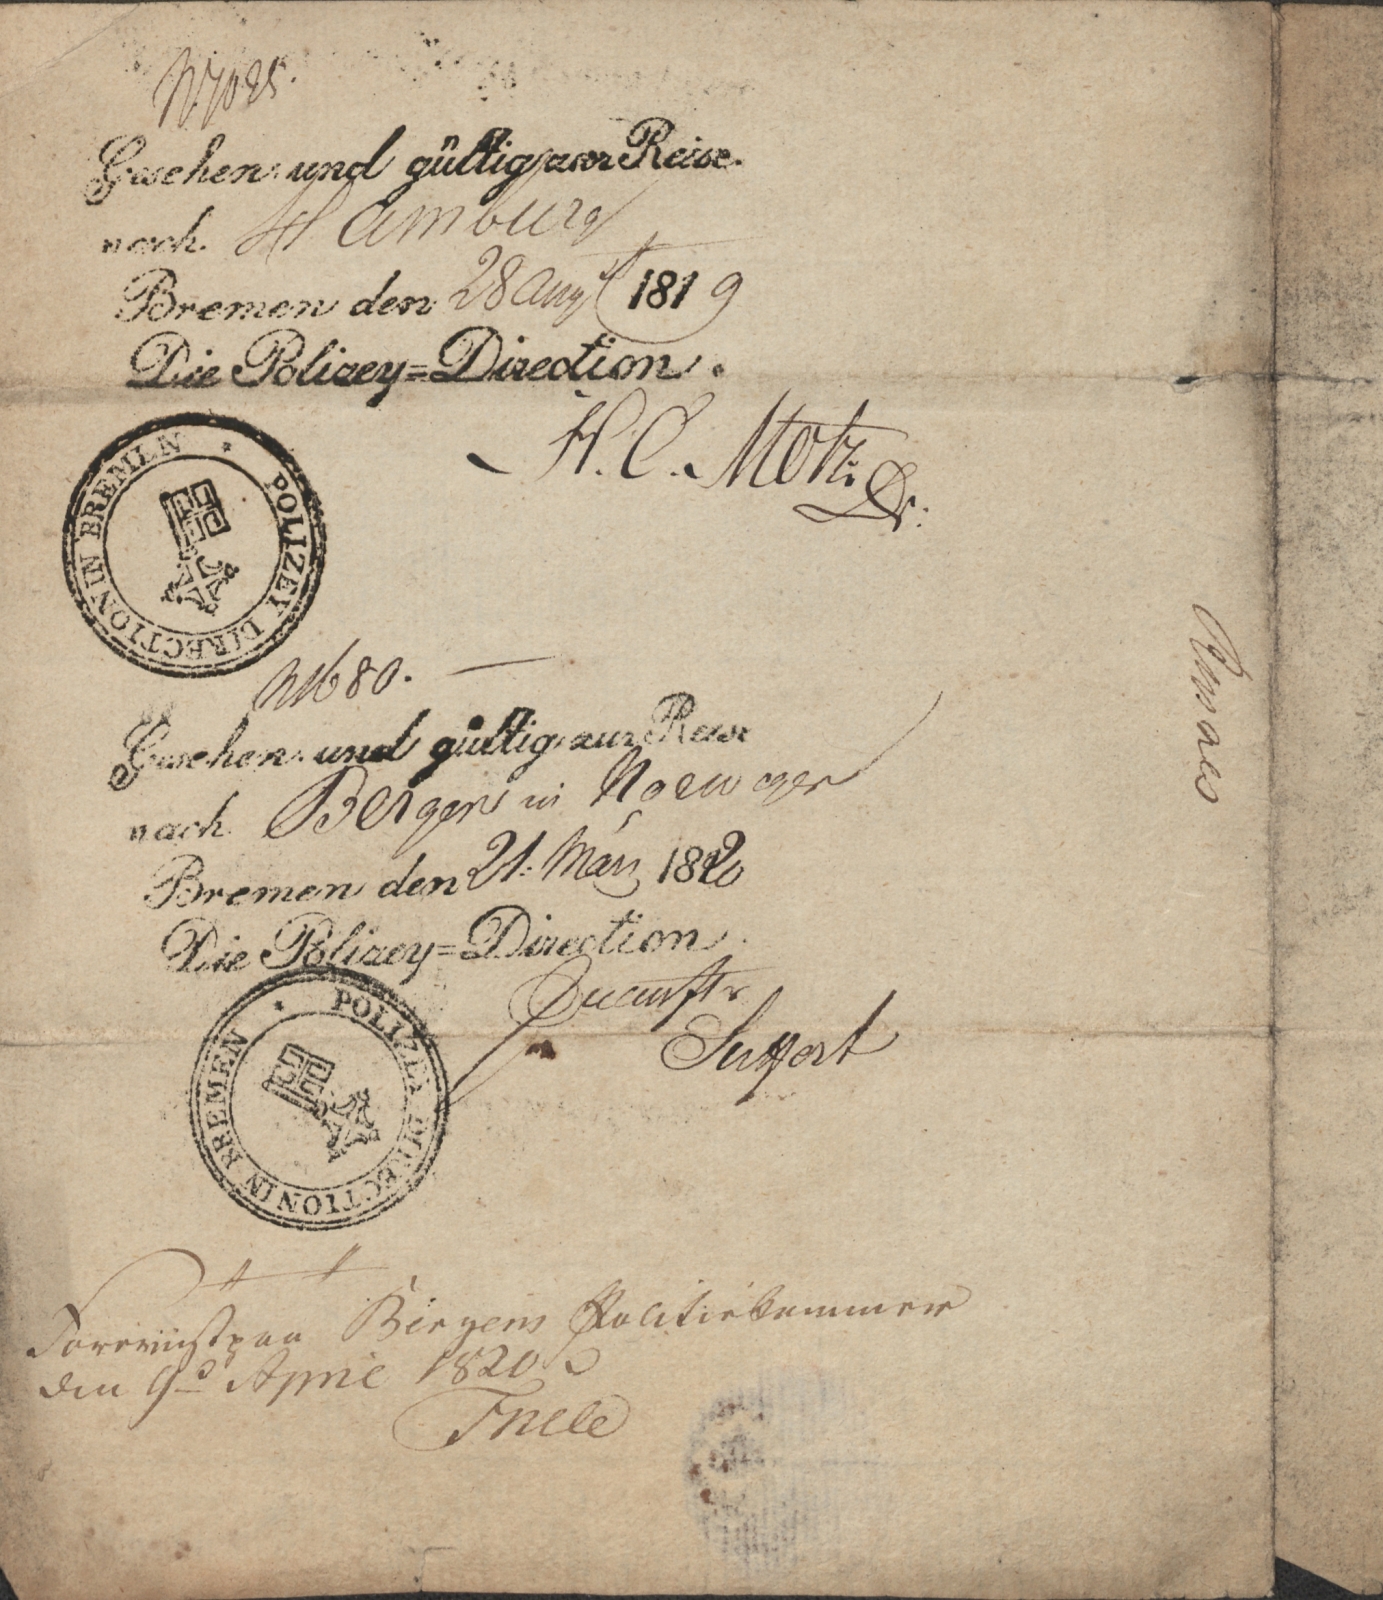 N 7025.
Gesehen und gültig zur Reise
nach Hamburg
Bremen den 28 Augt 1819
Die Polizey=Direction.
H. C. Motz Dr.
POLIZEY DIRECTION IN BREMEN *
N 1680.
Gesehen und gültig zur Reise
nach Bergen in Norweger
Bremen den 21. März 1820
Die Polizey=Direction
POLIZEY DIRECTION IN BREMEN *
Foreviist paa Bergens Politiekammer
den 9d April 1820